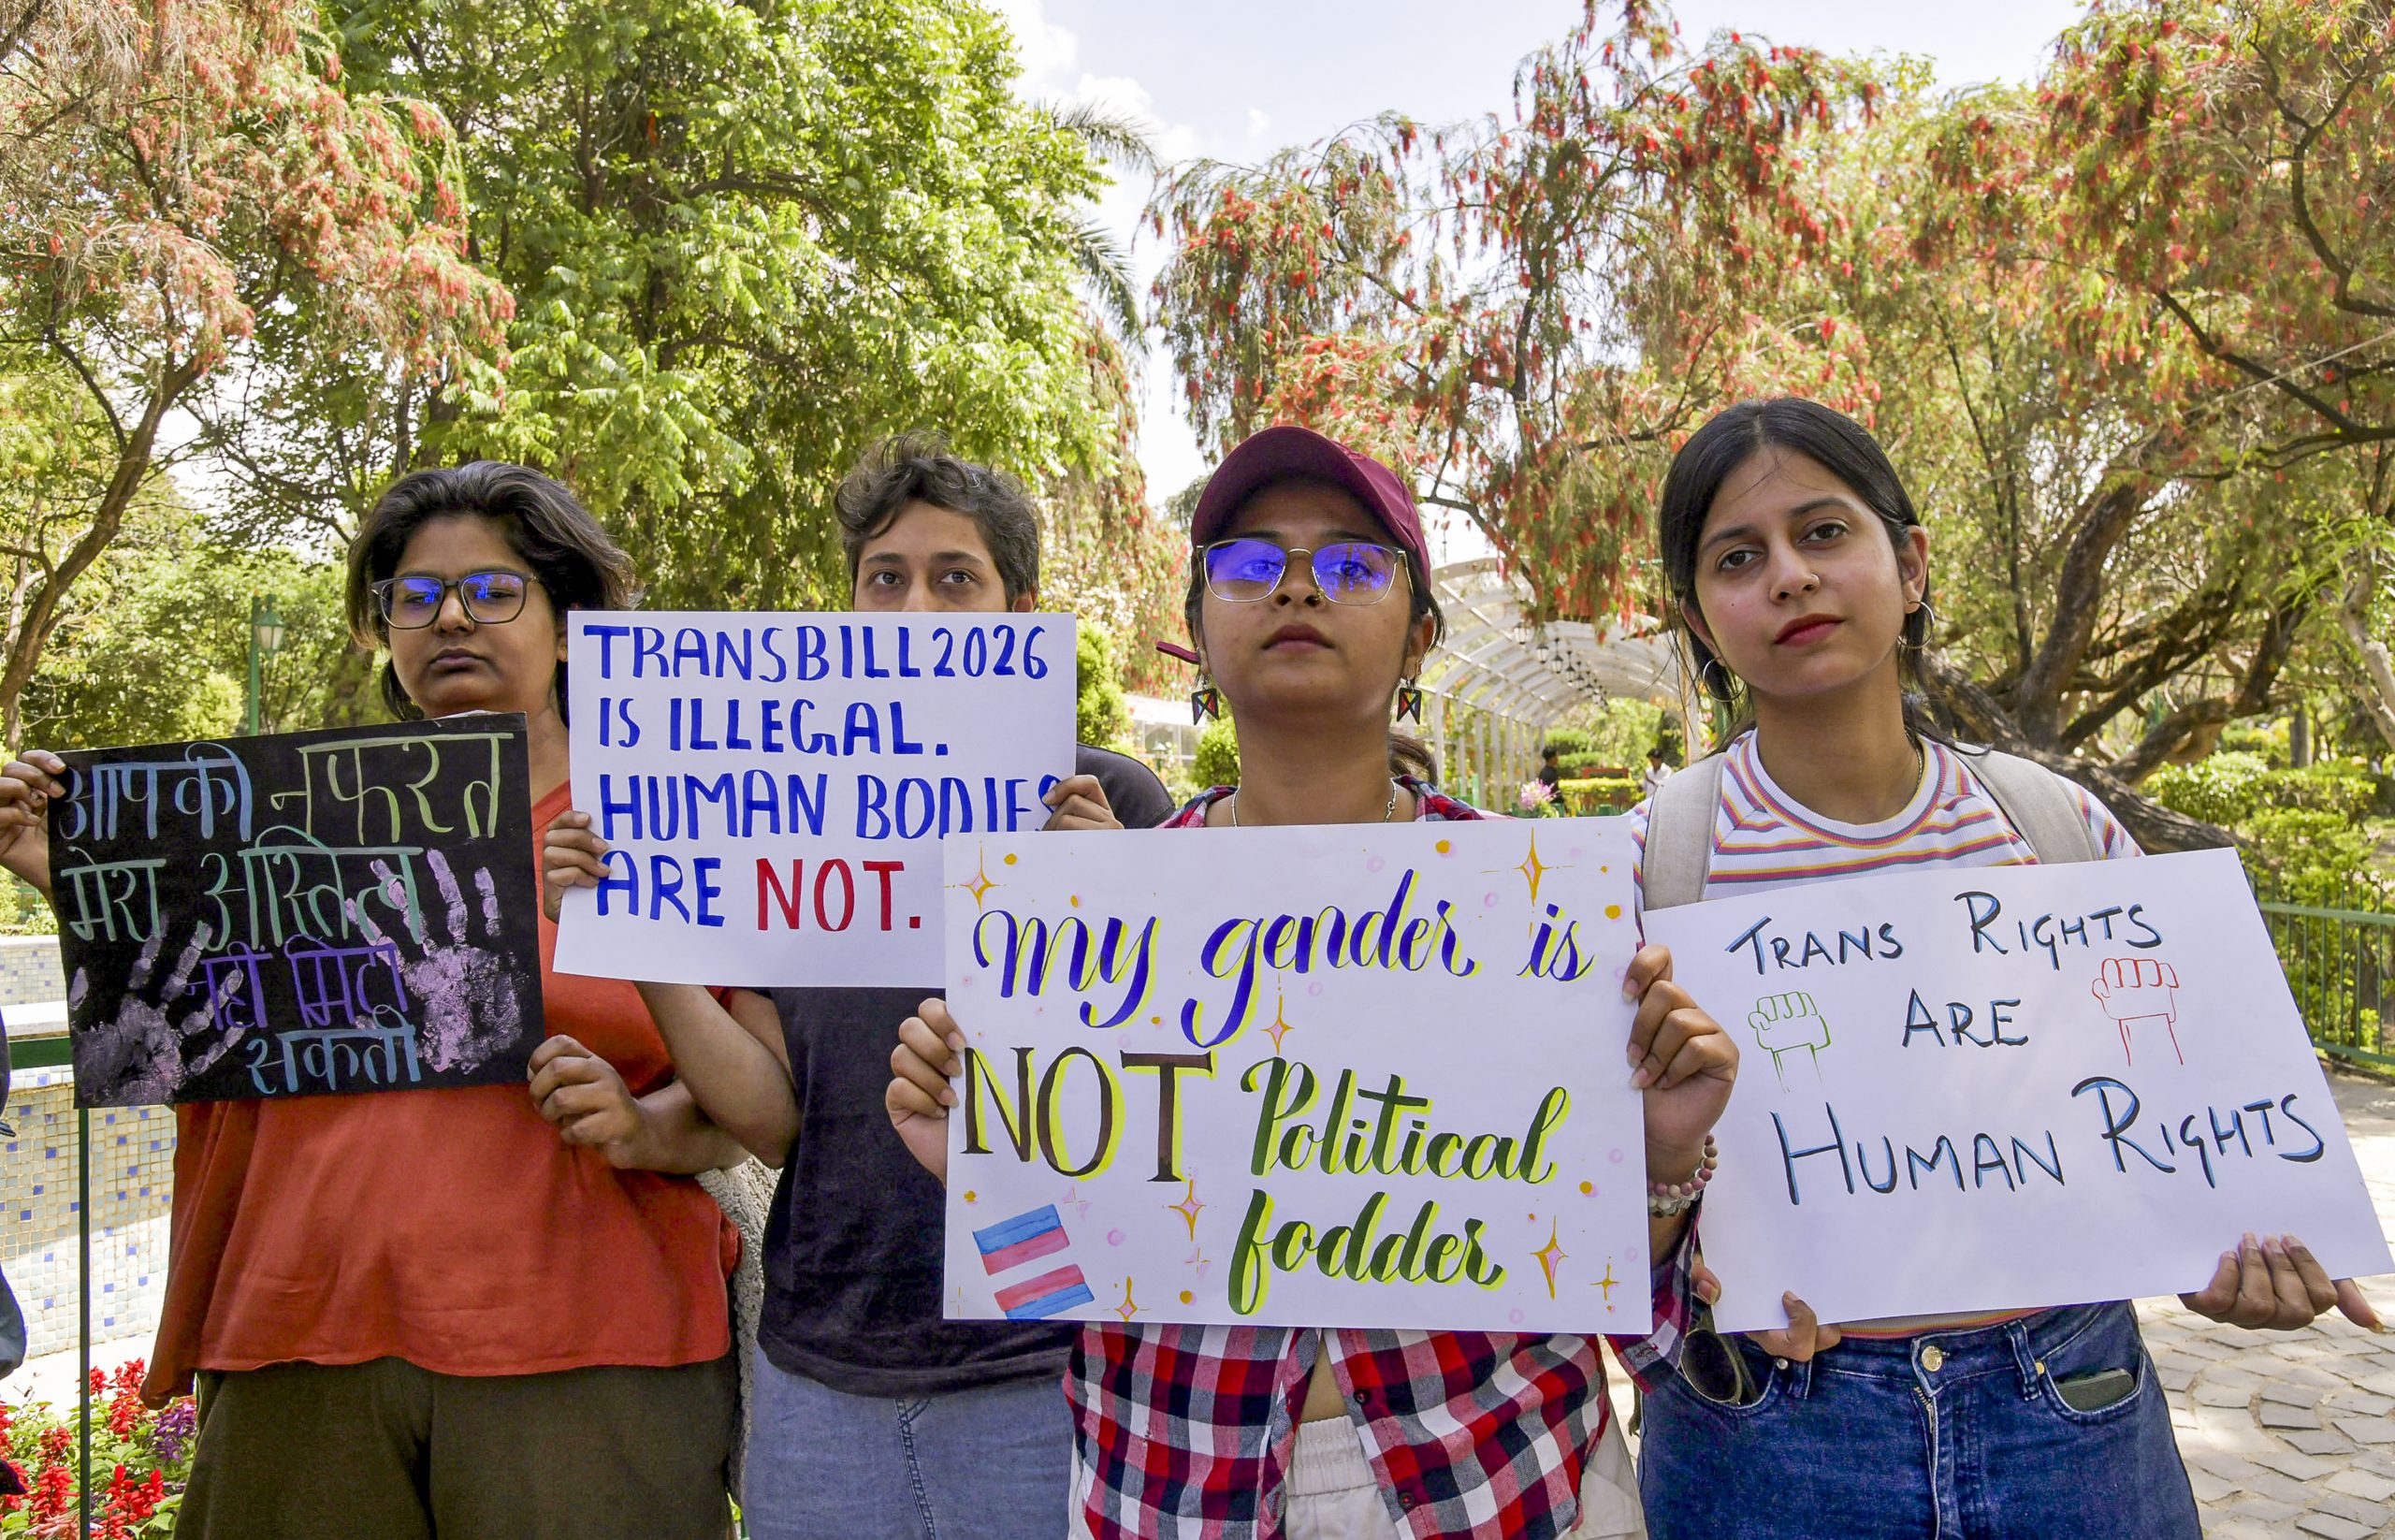 आपकी नफरत
मेरा अस्तित्व
नहीं मिटा
सकती
TRANSBILL 2026
IS ILLEGAL.
HUMAN BODIES
ARE NOT.
my gender is
NOT Political
fodder
TRANS RIGHTS
ARE
HUMAN RIGHTS